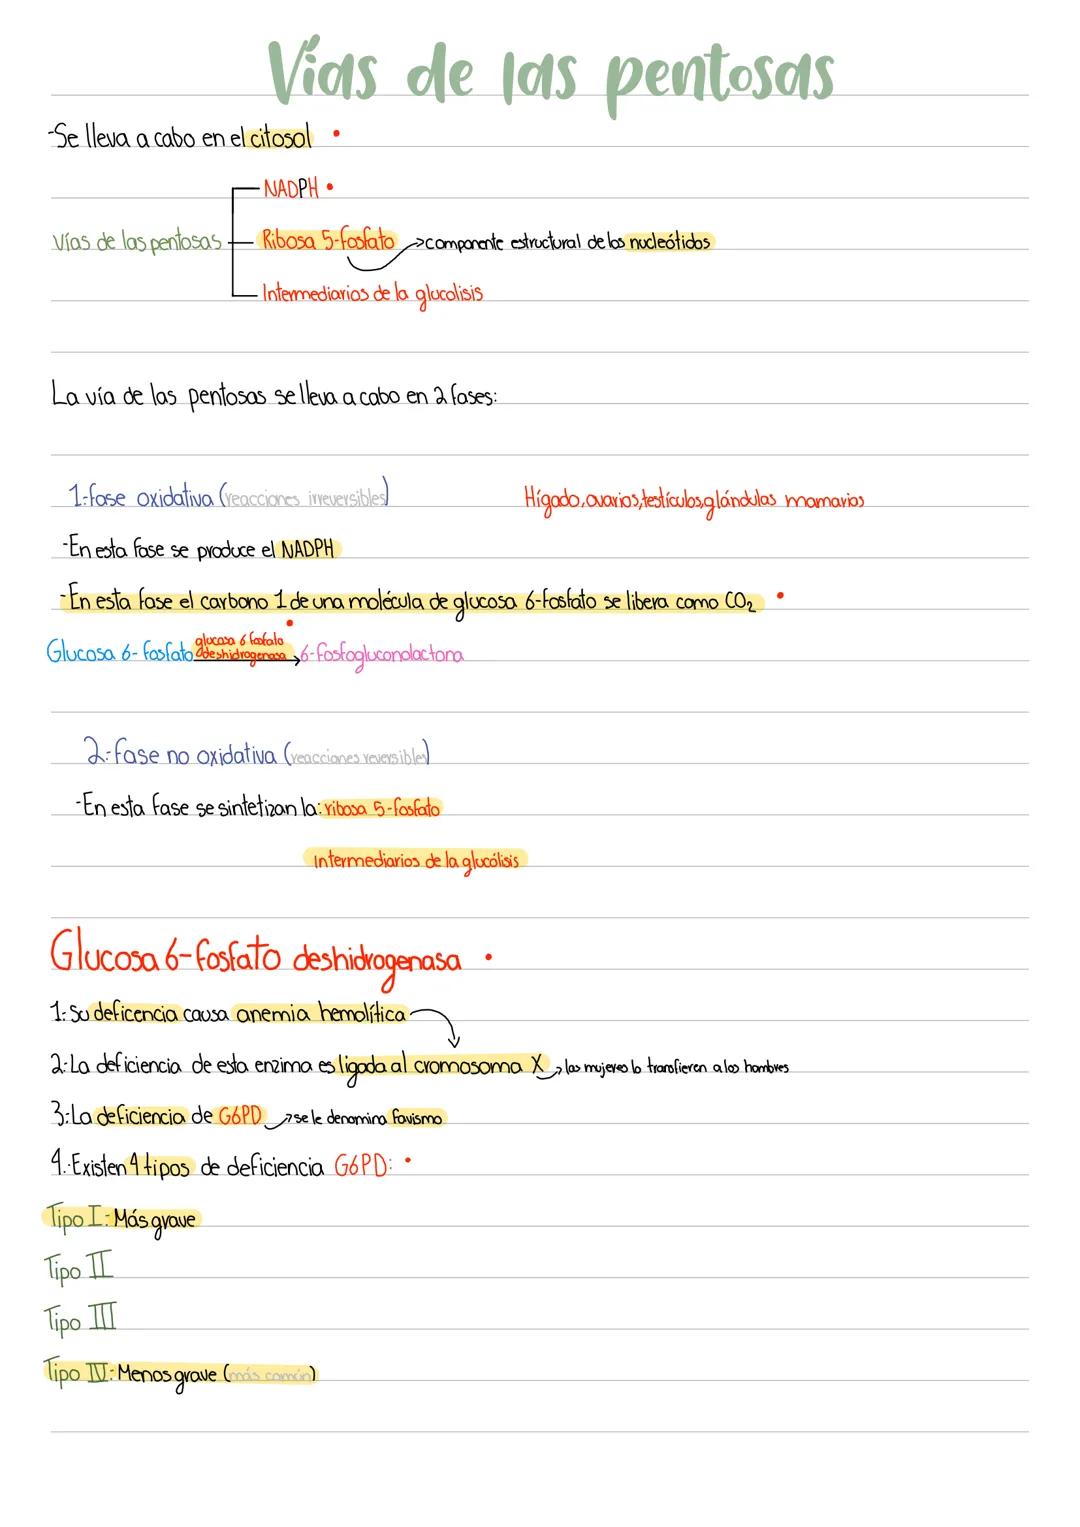 Vías de las pentosas
-Se lleva a cabo en el citosol
NADPH
Vías de las pentosas
Ribosa 5-fosfato
componente estructural de los nucleótidos
Intermediarios de la glucolisis
La vía de las pentosas se lleva a cabo en 2 fases:
1.-fase oxidativa (reacciones irreversibles)
Hígado, ovarios, testículos, glándulas mamarias
-En esta fase se produce el NADPH
-En esta fase el carbono 1 de una molécula de glucosa 6-fosfato se libera como CO₂
Glucosa 6-fosfato
glucosa 6 fosfato
deshidrogenasa
6-fosfogluconolactona
2.-fase no oxidativa (reacciones reversibles)
-En esta fase se sintetizan la: ribosa 5-fosfato
Intermediarios de la glucólisis
Glucosa 6-fosfato deshidrogenasa
1.-Su deficencia causa anemia hemolítica
2.-La deficiencia de esta enzima es ligada al cromosoma X
las mujeres lo transfieren a los hombres
3.-La deficiencia de G6PD
se le denomina favismo
4.-Existen 4 tipos de deficiencia G6PD:
Tipo I: Más grave
Tipo II
Tipo III
Tipo IV: Menos grave (más común)